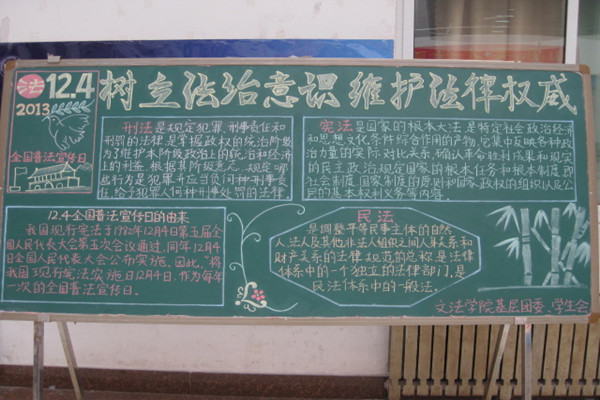 法 12.4
2013
全国普法宣传日
树立法治意识 维护法律权威
刑法是规定犯罪、刑事责任和
刑罚的法律,是掌握政权的统治阶级
为了维护本阶级政治上的统治和经济上
的利益,根据其阶级意志,规定哪
些行为是犯罪并应当负何种刑事责
任,给予犯罪人何种刑事处罚的法律。
宪法是国家的根本大法,是特定社会政治经济
和思想文化条件综合作用的产物,它集中反映各种政
治力量的实际对比关系,确认革命胜利成果和现实
的民主政治,规定国家的根本任务和根本制度,即
社会制度、国家制度的原则和国家政权的组织以及公
民的基本权利义务等内容。
12.4全国普法宣传日的由来
我国现行宪法于1982年12月4日第五届全
国人民代表大会第五次会议通过,同年12月4
日全国人民代表大会公布实施。因此,“将
我国现行宪法实施日12月4日,作为每年
一次的全国普法宣传日。
民法
是调整平等民事主体的自然
人、法人及其他非法人组织之间人身关系和
财产关系的法律规范的总称,是法律
体系中的一个独立的法律部门,是
民法体系中的一般法。
文法学院基层团委、学生会